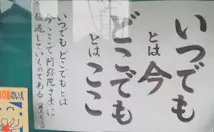 いつでも
とは今
どこでも
とはここ
いつでもどこでもとは
今ここで阿弥陀さまに
していくのである